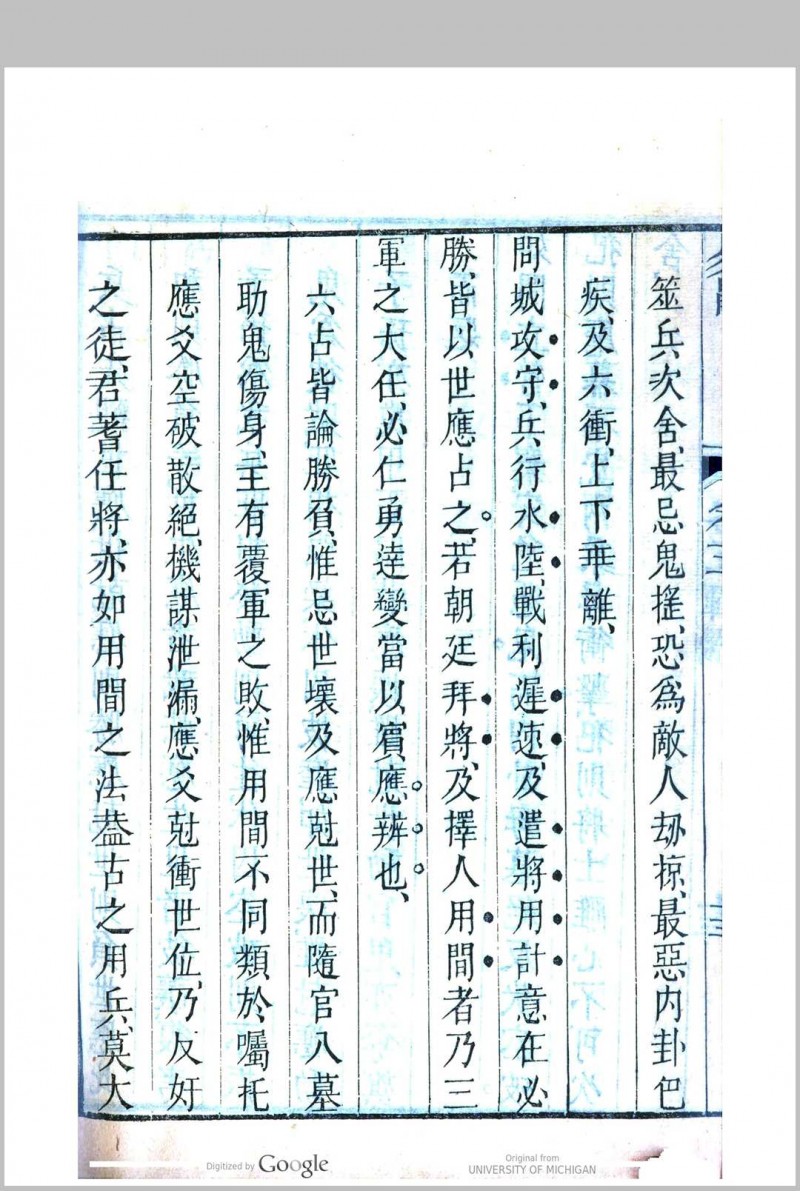 筮兵次舍、最忌鬼搖、恐爲敵人刼掠、最惡内卦巳
疾、及六衝、上下乖離、
問城攻守、兵行水陸、戰利遲速、及遣將用計、意在必
勝、皆以世應占之。若朝廷拜將、及擇人用間者乃三
軍之大任、必仁勇達變、當以賔應辨也、
六占皆論勝負、惟忌世壞及應尅世、而隨官入墓
助鬼傷身、主有覆軍之敗、惟用間不同類於囑托
應爻空破散絕、機謀泄漏、應爻尅衝世位、乃反奸
之徒、君著任將、亦如用間之法、葢古之用兵、莫大
Digitized by Google
Original from
UNIVERSITY OF MICHIGAN